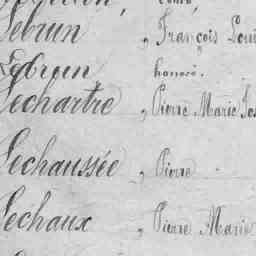 Lebrun „ François Loui
Lebrun honoré.
Lechartre „ Pierre Marie Jos
Lechaussée „ Pierre
Lechaux „ Pierre Marie